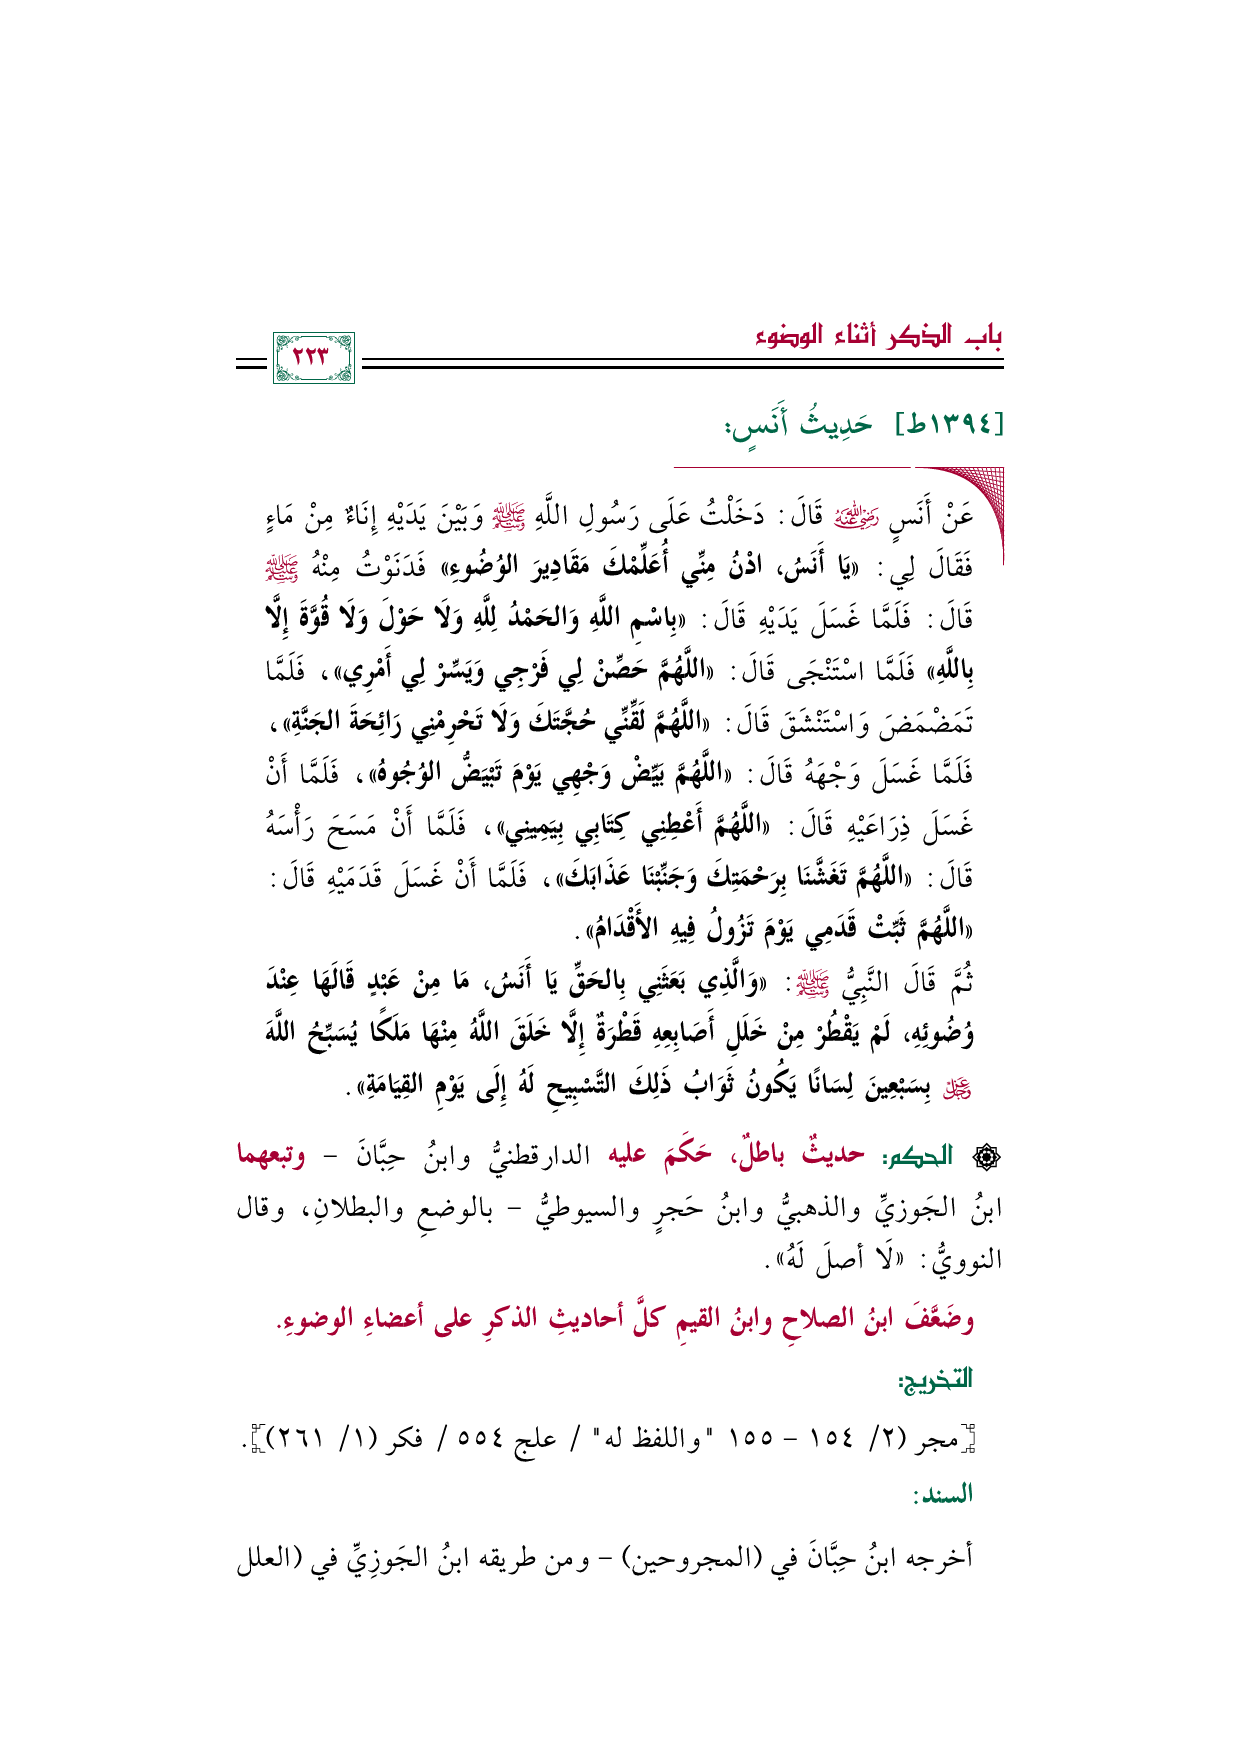 باب الذكر أثناء الوضوء
٢٢٣
[١٣٩٤ط] حَدِيثُ أَنَسٍ:
عَنْ أَنَسٍ رضي الله عنه قَالَ: دَخَلْتُ عَلَى رَسُولِ اللَّهِ ﷺ وَبَيْنَ يَدَيْهِ إِنَاءٌ مِنْ مَاءٍ
فَقَالَ لِي: «يَا أَنَسُ، ادْنُ مِنِّي أُعَلِّمْكَ مَقَادِيرَ الوُضُوءِ» فَدَنَوْتُ مِنْهُ ﷺ
قَالَ: فَلَمَّا غَسَلَ يَدَيْهِ قَالَ: «بِاسْمِ اللَّهِ وَالحَمْدُ لِلَّهِ وَلَا حَوْلَ وَلَا قُوَّةَ إِلَّا
بِاللَّهِ» فَلَمَّا اسْتَنْجَى قَالَ: «اللَّهُمَّ حَصِّنْ لِي فَرْجِي وَيَسِّرْ لِي أَمْرِي»، فَلَمَّا
تَمَضْمَضَ وَاسْتَنْشَقَ قَالَ: «اللَّهُمَّ لَقِّنِّي حُجَّتَكَ وَلَا تَحْرِمْنِي رَائِحَةَ الجَنَّةِ»،
فَلَمَّا غَسَلَ وَجْهَهُ قَالَ: «اللَّهُمَّ بَيِّضْ وَجْهِي يَوْمَ تَبْيَضُّ الوُجُوهُ»، فَلَمَّا أَنْ
غَسَلَ ذِرَاعَيْهِ قَالَ: «اللَّهُمَّ أَعْطِنِي كِتَابِي بِيَمِينِي»، فَلَمَّا أَنْ مَسَحَ رَأْسَهُ
قَالَ: «اللَّهُمَّ تَغَشَّنَا بِرَحْمَتِكَ وَجَنِّبْنَا عَذَابَكَ»، فَلَمَّا أَنْ غَسَلَ قَدَمَيْهِ قَالَ:
«اللَّهُمَّ ثَبِّتْ قَدَمِي يَوْمَ تَزُولُ فِيهِ الأَقْدَامُ».
ثُمَّ قَالَ النَّبِيُّ ﷺ: «وَالَّذِي بَعَثَنِي بِالحَقِّ يَا أَنَسُ، مَا مِنْ عَبْدٍ قَالَهَا عِنْدَ
وُضُوئِهِ، لَمْ يَقْطُرْ مِنْ خَلَلِ أَصَابِعِهِ قَطْرَةٌ إِلَّا خَلَقَ اللَّهُ مِنْهَا مَلَكًا يُسَبِّحُ اللَّهَ
عز وجل بِسَبْعِينَ لِسَانًا يَكُونُ ثَوَابُ ذَلِكَ التَّسْبِيحِ لَهُ إِلَى يَوْمِ القِيَامَةِ».
الحكم: حديثٌ باطلٌ، حَكَمَ عليه الدارقطنيُّ وابنُ حِبَّانَ – وتبعهما
ابنُ الجَوزيِّ والذهبيُّ وابنُ حَجرٍ والسيوطيُّ – بالوضعِ والبطلانِ، وقال
النوويُّ: «لَا أصلَ لَهُ».
وضَعَّفَ ابنُ الصلاحِ وابنُ القيمِ كلَّ أحاديثِ الذكرِ على أعضاءِ الوضوءِ.
التخريج:
[مجر (٢/ ١٥٤ – ١٥٥ "واللفظ له" / علج ٥٥٤ / فكر (١/ ٢٦١)].
السند:
أخرجه ابنُ حِبَّانَ في (المجروحين) – ومن طريقه ابنُ الجَوزِيِّ في (العلل